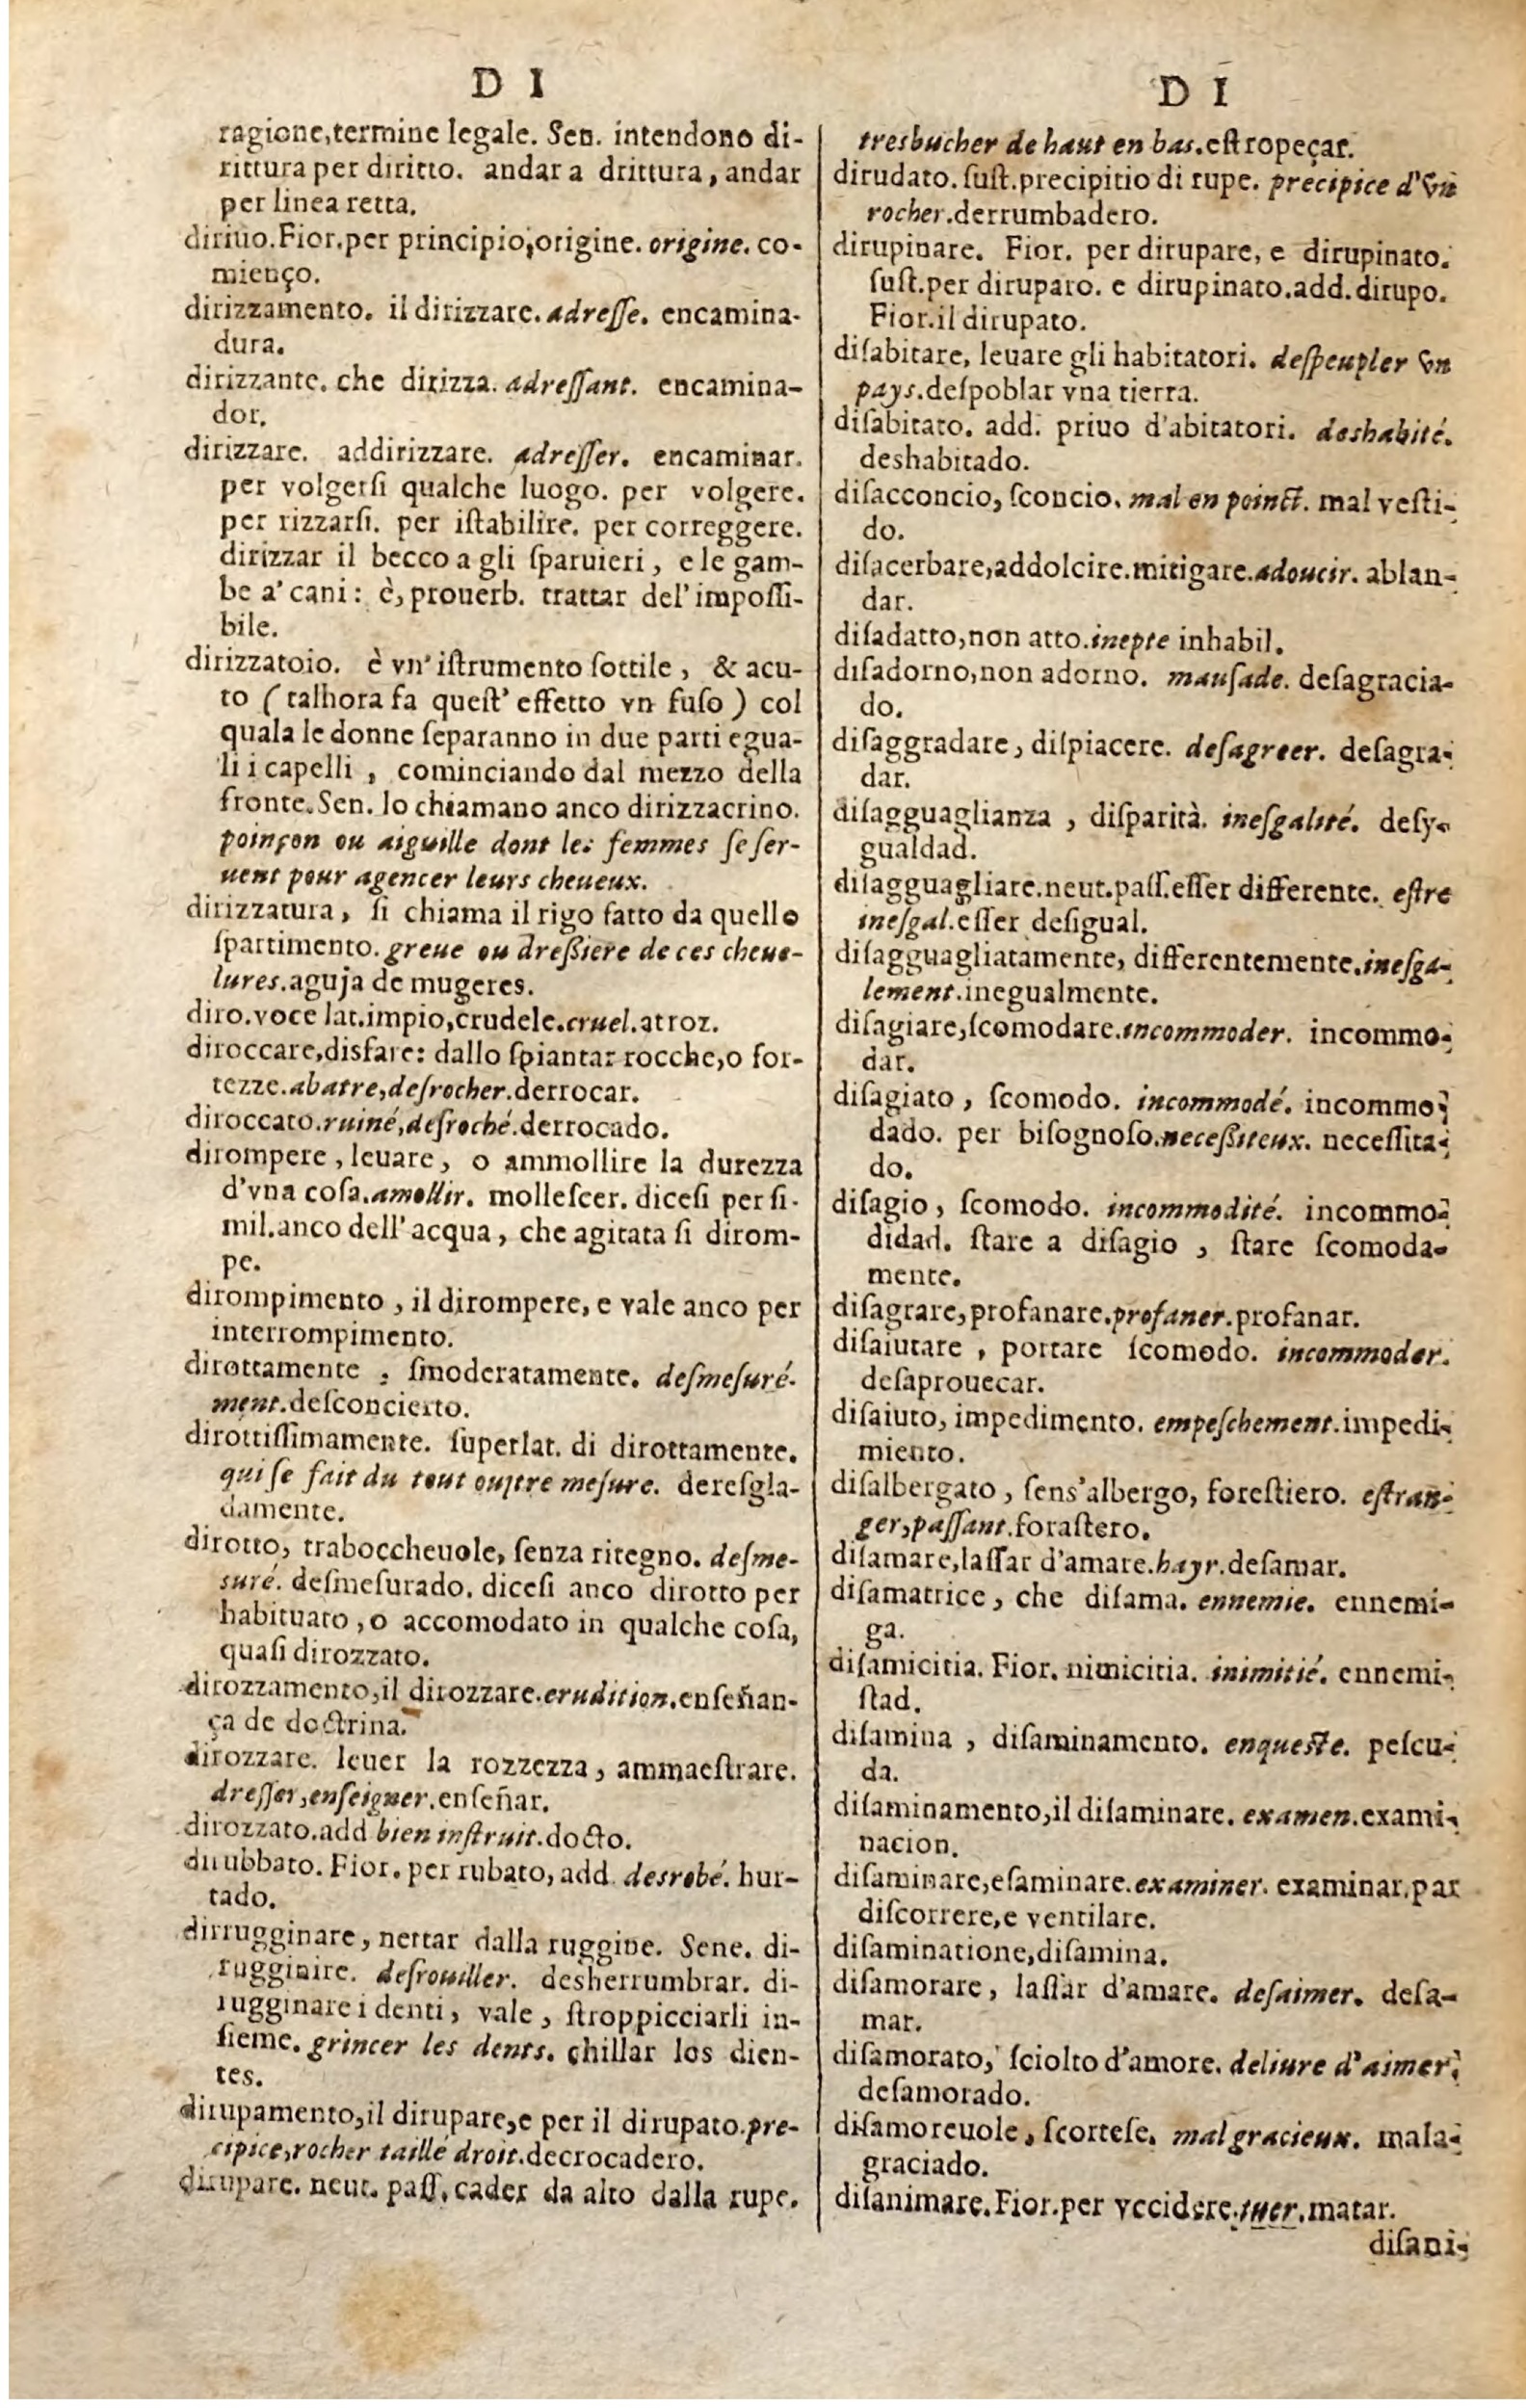 D I
ragione,termine legale. Sen. intendono di-
rittura per diritto. andar a drittura, andar
per linea retta.
diriuo.Fior.per principio,origine. origine. co-
mienço.
dirizzamento. il dirizzare. adreſſe. encamina-
dura.
dirizzante. che dirizza. adreſſant. encamina-
dor.
dirizzare. addirizzare. adreſſer. encaminar.
per volgerſi qualche luogo. per volgere.
per rizzarſi. per iſtabilire. per correggere.
dirizzar il becco a gli ſparuieri, e le gam-
be a' cani: è, prouerb. trattar del'impoſſi-
bile.
dirizzatoio. è vn'iſtrumento ſottile, & acu-
to (talhora fa queſt' effetto vn fuſo) col
quala le donne ſeparanno in due parti egua-
li i capelli, cominciando dal mezzo della
fronte. Sen. lo chiamano anco dirizzacrino.
poinçon ou aiguille dont les femmes ſe ſer-
uent pour agencer leurs cheueux.
dirizzatura, ſi chiama il rigo fatto da quello
ſpartimento. greue ou dreßiere de ces cheue-
lures. aguja de mugeres.
diro. voce lat. impio, crudele. cruel. atroz.
diroccare, disfare: dallo ſpiantar rocche, o for-
tezze. abatre, deſrocher. derrocar.
diroccato. ruiné, deſroché. derrocado.
dirompere, leuare, o ammollire la durezza
d'vna coſa. amollir. molleſcer. diceſi per ſi-
mil. anco dell'acqua, che agitata ſi dirom-
pe.
dirompimento, il dirompere, e vale anco per
interrompimento.
dirottamente, ſmoderatamente. deſmeſuré-
ment. deſconcierto.
dirottiſſimamente. ſuperlat. di dirottamente.
qui ſe fait du tout oultre meſure. dereſgla-
damente.
dirotto, traboccheuole, ſenza ritegno. deſme-
suré. deſmeſurado. diceſi anco dirotto per
habituato, o accomodato in qualche coſa,
quaſi dirozzato.
dirozzamento, il dirozzare. erudition. enſeñan-
ça de doctrina.
dirozzare. leuer la rozzezza, ammaeſtrare.
dreſſer, enſeigner. enſeñar.
dirozzato. add bien inſtruit. docto.
dirubbato. Fior. per rubato, add. desrobé. hur-
tado.
dirrugginare, nettar dalla ruggine. Sene. di-
rugginire. deſrouiller. desherrumbrar. di-
rugginare i denti, vale, ſtroppicciarli in-
ſieme. grincer les dents. chillar los dien-
tes.
dirupamento, il dirupare, e per il dirupato. pre-
cipice, rocher taillé droit. decrocadero.
dirupare. neut. paſſ. cader da alto dalla rupe.
D I
tresbucher de haut en bas. eſtropeçar.
dirudato. ſuſt. precipitio di rupe. precipice d'vn
rocher. derrumbadero.
dirupinare. Fior. per dirupare, e dirupinato.
ſuſt. per diruparo. e dirupinato. add. dirupo.
Fior. il dirupato.
diſabitare, leuare gli habitatori. deſpeupler vn
pays. deſpoblar vna tierra.
diſabitato. add. priuo d'abitatori. deshabité.
deshabitado.
diſacconcio, ſconcio. mal en poinct. mal veſti-
do.
diſacerbare, addolcire. mitigare. adoucir. ablan-
dar.
diſadatto, non atto. inepte inhabil.
diſadorno, non adorno. mauſade. deſagracia-
do.
diſaggradare, diſpiacere. deſagreer. deſagra-
dar.
diſagguaglianza, diſparità. ineſgalité. deſy-
gualdad.
diſagguagliare. neut. paſſ. eſſer differente. eſtre
ineſgal. eſſer deſigual.
diſagguagliatamente, differentemente. ineſga-
lement. inegualmente.
diſagiare, ſcomodare. incommoder. incommo-
dar.
diſagiato, ſcomodo. incommodé. incommo-
dado. per biſognoſo. neceßiteux. neceſſita-
do.
diſagio, ſcomodo. incommodité. incommo-
didad. ſtare a diſagio, ſtare ſcomoda-
mente.
diſagrare, profanare. profaner. profanar.
diſaiutare, portare ſcomodo. incommoder.
deſaprouecar.
diſaiuto, impedimento. empeſchement. impedi-
miento.
diſalbergato, ſens'albergo, foreſtiero. eſtran-
ger, paſſant. foraſtero.
diſamare, laſſar d'amare. hayr. deſamar.
diſamatrice, che diſama. ennemie. ennemi-
ga.
diſamicitia. Fior. nimicitia. inimitié. ennemi-
ſtad.
diſamina, diſaminamento. enqueſte. peſcu-
da.
diſaminamento, il diſaminare. examen. exami-
nacion.
diſaminare, eſaminare. examiner. examinar. par
diſcorrere, e ventilare.
diſaminatione, diſamina.
diſamorare, laſſar d'amare. deſaimer. deſa-
mar.
diſamorato, ſciolto d'amore. deliure d'aimer.
deſamorado.
diſamoreuole, ſcorteſe. mal gracieux. mala-
graciado.
diſanimare. Fior. per vccidere. tuer. matar.
diſani-